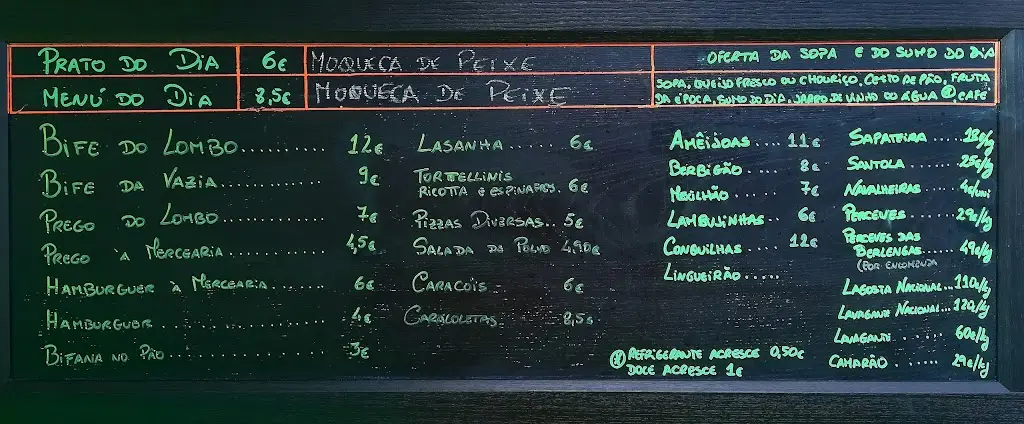 PRATO DO DIA 6€ MOQUECA DE PEIXE OFERTA DA SOPA E DO SUMO DO DIA
MENÚ DO DIA 8,5€ MOQUECA DE PEIXE SOPA, QUEIJO FRESCO OU CHOURIÇO, CESTO DE PÃO, FRUTA
DA ÉPOCA, SUMO DO DIA, JARRO DE VINHO OU ÁGUA CAFÉ
BIFE DO LOMBO.......... 12€
BIFE DA VAZIA.......... 9€
PREGO DO LOMBO.......... 7€
PREGO À MERCEARIA.......... 4,5€
HAMBURGUER À MERCEARIA.......... 6€
HAMBURGUER.......... 4€
BIFANA NO PÃO.......... 3€
LASANHA...... 6€
TORTELLINIS
RICOTTA E ESPINAFRES. 6€
PIZZAS DIVERSAS.. 5€
SALADA DO POLVO 4,90€
CARACOIS 6€
CARACOLETAS 8,5€
AMÊIJOAS.... 11€
BERBIGÃO.... 8€
MEXILHÃO.... 7€
LAMBUJINHAS.. 6€
CONQUILHAS... 12€
LINGUEIRÃO.....
SAPATEIRA...18€/kg
SANTOLA.....25€/kg
NAVALHEIRAS...4€/uni
PERCEVES......29€/kg
PERCEVES DAS
BERLENGAS.....49€/kg
(POR ENCOMENDA
LAGOSTA NACIONAL...110€/kg
LAVAGANTE NACIONAL...120€/kg
LAVAGANTE.......60€/kg
CAMARÃO......29€/kg
REFRIGERANTE ACRESCE 0,50€
DOCE ACRESCE 1€